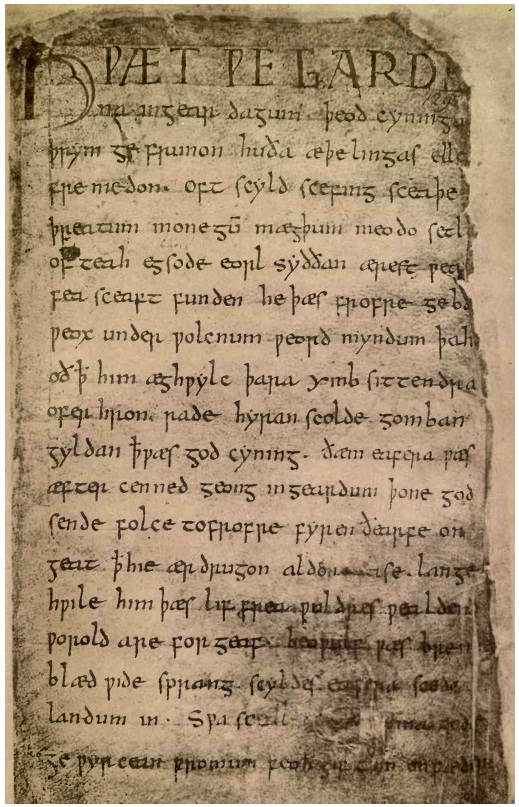 HǷÆT ǷE GARDE
na ingear dagum. þeod cyninga
þrym ge frunon huða æþelingas elle
fre medon. oft scyld scefing sceaþe
þreatum monegū mægþum meodo setl
of teah egsode eorl syððan ærest ƿea
fea sceaft funden he þæs frofre geba
ƿeox under ƿolcnum ƿeorð myndum þah
oð ꝥ him æghƿylc þara ymb sittendra
ofer hron rade hyran scolde gomban
gyldan ꝥ ƿæs god cyning. ðæm eafera ƿæs
æfter cenned geong ingeardum þone god
sende folce tofrofre fyren ðearfe on
geat ꝥ hie ær drugon lange
hƿile him þæs lif frea ƿuldres ƿealdend
ƿorold are for geaf. beoƿulf ƿæs breme
blæd ƿide sprang scyldes eafera scede
landum in. Sƿa sceal
ge ƿyrcean fromum feoh giftum